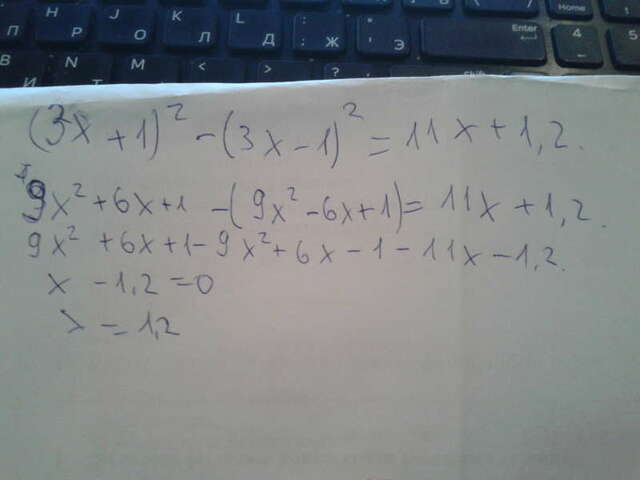 Home
П Н Р О Л Д ; Ж ' Э Enter 4 5
И N Т M Ь < > ?
(3x+1)² -(3x-1)² = 11x+1,2.
9x²+6x+1 -(9x²-6x+1)= 11x+1,2.
9x² +6x+1-9x²+6x-1-11x-1,2.
x -1,2=0
x = 1,2